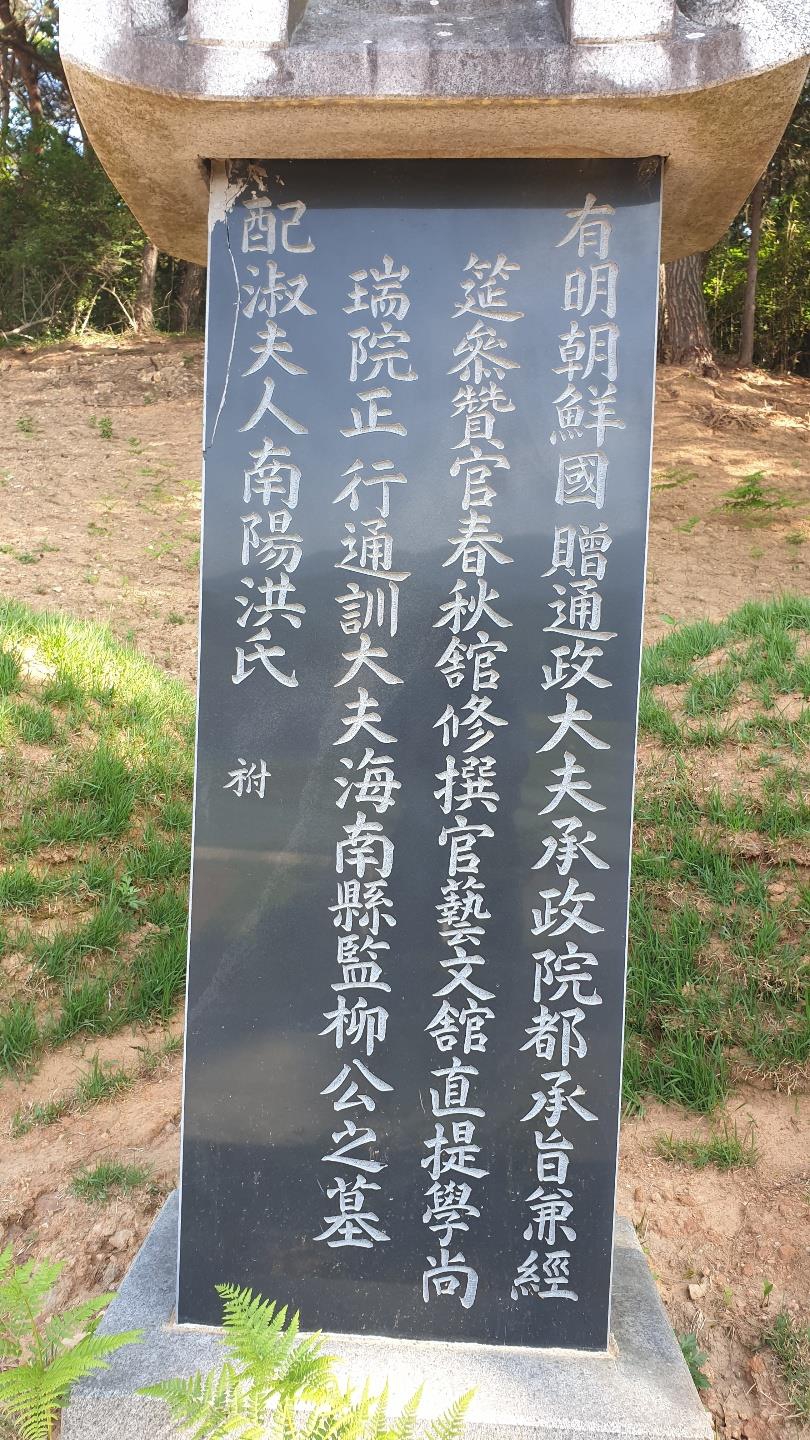 有明朝鮮國 贈通政大夫承政院都承旨兼經
筵參贊官春秋舘修撰官藝文舘直提學尚
瑞院正 行通訓大夫海南縣監柳公之墓
配淑夫人南陽洪氏 祔